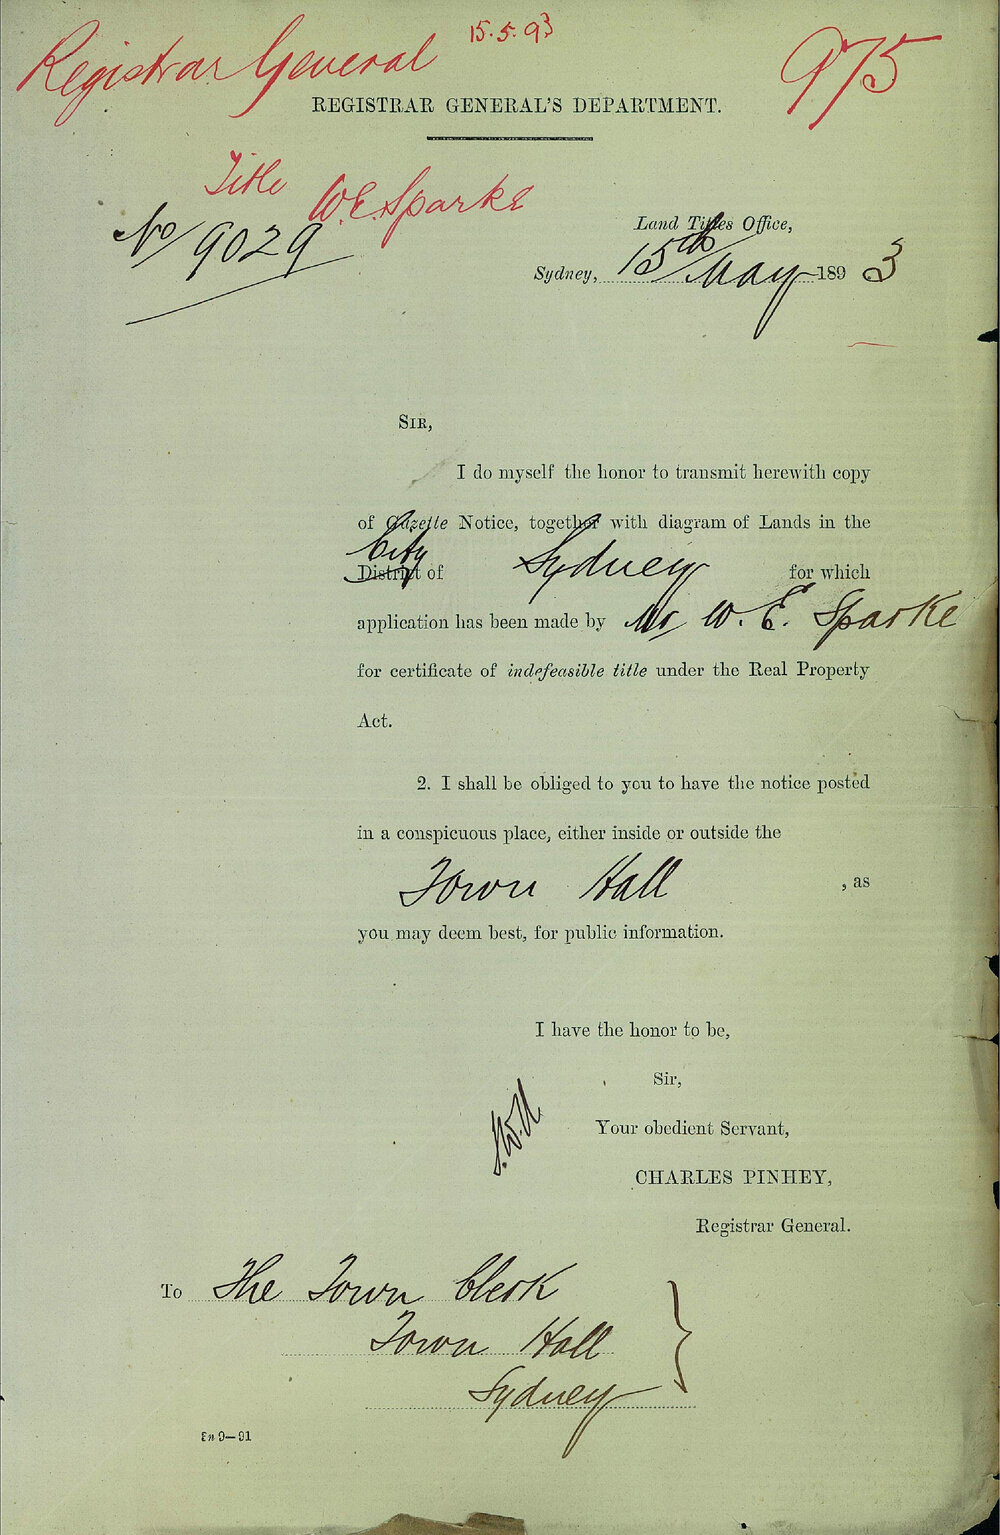 15.5.93
Registrar General
975
REGISTRAR GENERAL'S DEPARTMENT.
Title W.E. Sparke
No 9029
Land Titles Office,
Sydney, 15th May 1893
SIR,
I do myself the honor to transmit herewith copy
of Gazette Notice, together with diagram of Lands in the
City
District of Sydney for which
application has been made by Mr W. E. Sparke
for certificate of indefeasible title under the Real Property
Act.
2. I shall be obliged to you to have the notice posted
in a conspicuous place, either inside or outside the
Town Hall , as
you may deem best, for public information.
I have the honor to be,
Sir,
Your obedient Servant,
CHARLES PINHEY,
Registrar General.
To The Town Clerk
Town Hall
Sydney